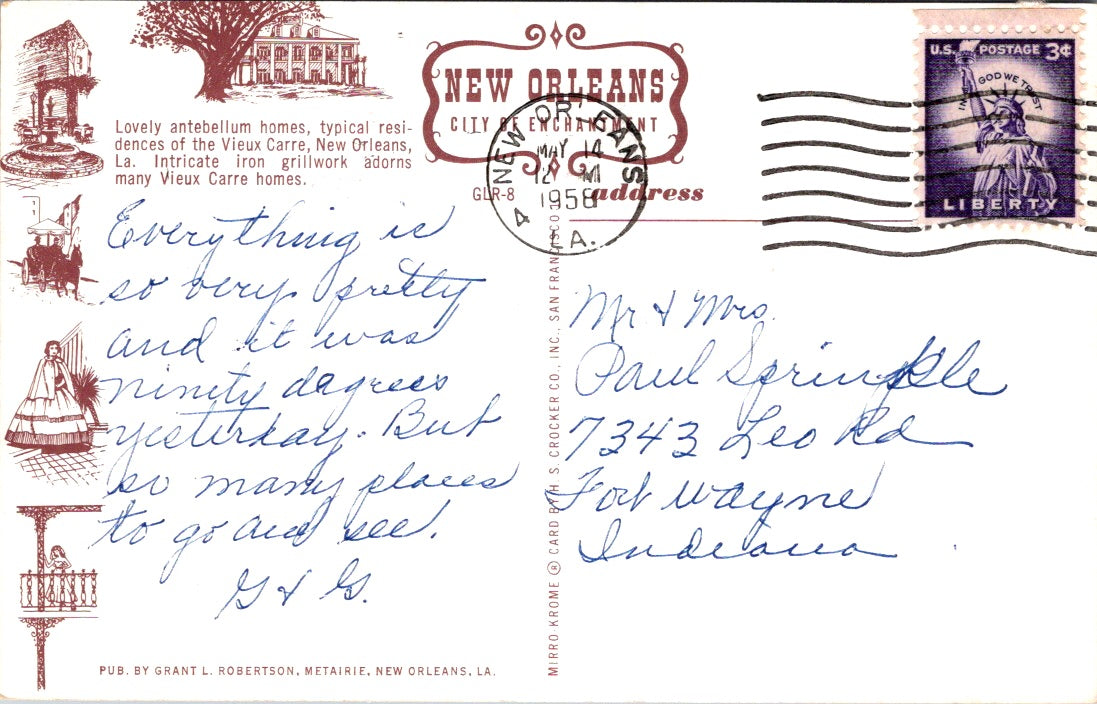 NEW ORLEANS
CITY OF ENCHANTMENT
U.S. POSTAGE 3¢
IN GOD WE TRUST
LIBERTY
NEW ORLEANS
MAY 14
12 M
1958
4
LA.
Lovely antebellum homes, typical resi-
dences of the Vieux Carre, New Orleans,
La. Intricate iron grillwork adorns
many Vieux Carre homes.
GLR-8
address
Everything is
so very pretty
and it was
ninity degrees
yesterday. But
so many places
to go and see.
G & G.
Mr & Mrs.
Paul Sprinkle
7343 Leo Rd
Fort Wayne
Indiana
MIRRO-KROME ® CARD BY H. S. CROCKER CO., INC., SAN FRANCISCO
PUB. BY GRANT L. ROBERTSON, METAIRIE, NEW ORLEANS, LA.